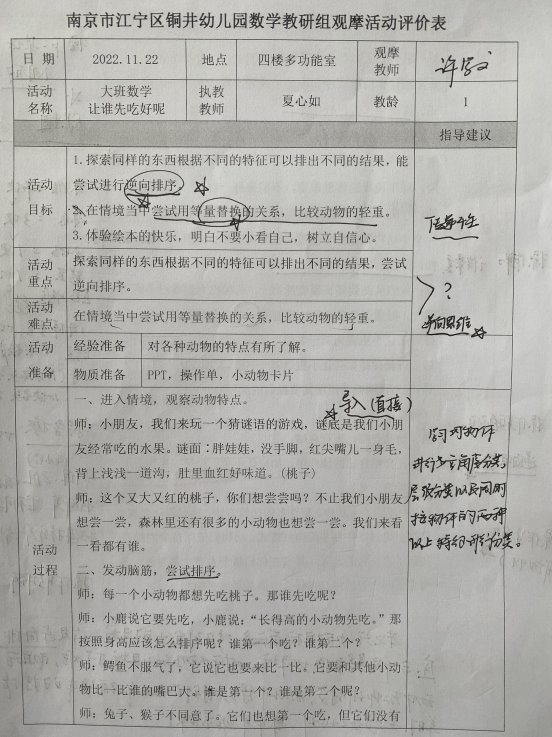 南京市江宁区铜井幼儿园数学教研组观摩活动评价表
日 期 2022.11.22 地点 四楼多功能室 观摩教师
活动名称 大班数学 让谁先吃好呢 执教教师 夏心如 教龄 1
指导建议
活动目标
1.探索同样的东西根据不同的特征可以排出不同的结果，能
尝试进行逆向排序。
2.在情境当中尝试用等量替换的关系，比较动物的轻重。
3.体验绘本的快乐，明白不要小看自己，树立自信心。
活动重点
探索同样的东西根据不同的特征可以排出不同的结果，尝试
逆向排序。
?
活动难点
在情境当中尝试用等量替换的关系，比较动物的轻重。
逆向思维
活动准备
经验准备 对各种动物的特点有所了解。
物质准备 PPT，操作单，小动物卡片
活动过程
一、进入情境，观察动物特点。
导入(直接)
师：小朋友，我们来玩一个猜谜语的游戏，谜底是我们小朋
友经常吃的水果。谜面：胖娃娃，没手脚，红尖嘴儿一身毛，
背上浅浅一道沟，肚里血红好味道。(桃子)
师：这个又大又红的桃子，你们想尝尝吗？不止我们小朋友
想尝一尝，森林里还有很多的小动物也想尝一尝。我们来看
一看都有谁。
学习对物体
进行多角度分类，
层级分类以及同时
按物体的两种
以上特征进行分类。
二、发动脑筋，尝试排序。
师：每一个小动物都想先吃桃子。那谁先吃呢？
师：小鹿说它要先吃，小鹿说：“长得高的小动物先吃。”那
按照身高应该怎么排序呢？谁第一个吃？谁第二个？
师：鳄鱼不服气了，它说它也要来比一比。它要和其他小动
物比一比谁的嘴巴大。谁是第一个？谁是第二个呢？
师：兔子、猴子不同意了。它们也想第一个吃，但它们没有